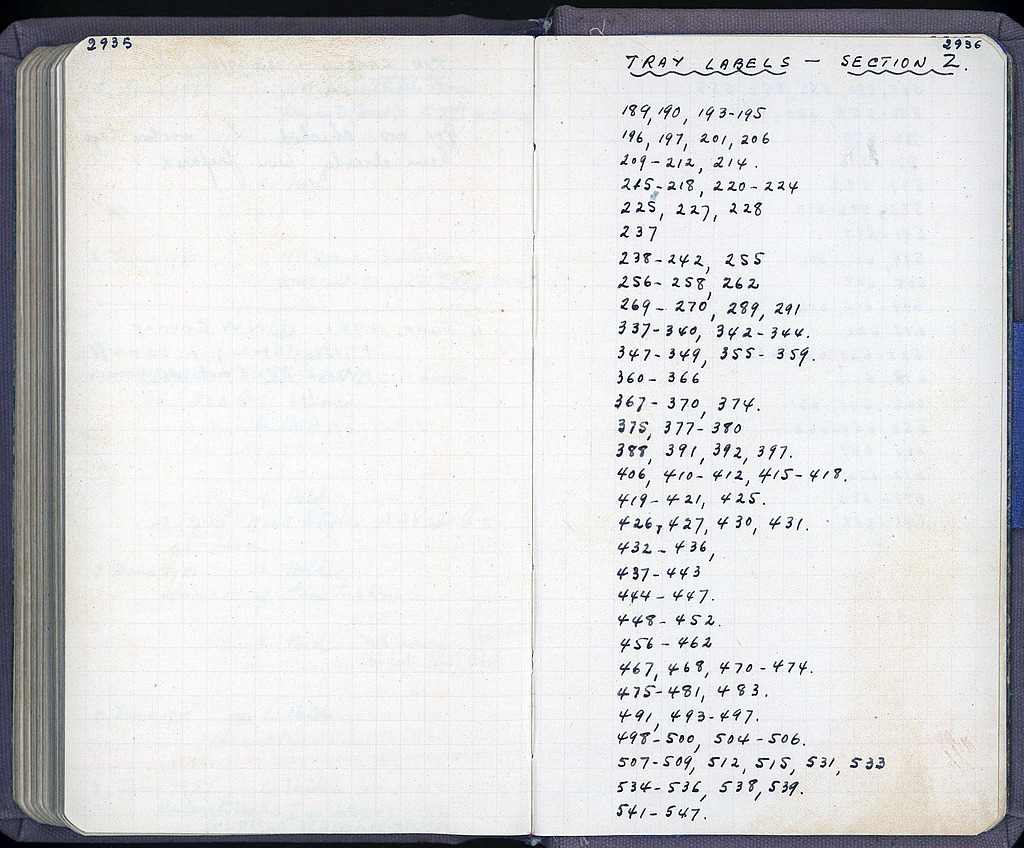 2935
2936
TRAY LABELS - SECTION 2.
189, 190, 193-195
196, 197, 201, 206
209-212, 214.
215-218, 220-224
225, 227, 228
237
238-242, 255
256-258, 262
269-270, 289, 291
337-340, 342-344.
347-349, 355-359.
360-366
367-370, 374.
375, 377-380
388, 391, 392, 397.
406, 410-412, 415-418.
419-421, 425.
426, 427, 430, 431.
432-436,
437-443
444-447.
448-452.
456-462
467, 468, 470-474.
475-481, 483.
491, 493-497.
498-500, 504-506.
507-509, 512, 515, 531, 533
534-536, 538, 539.
541-547.